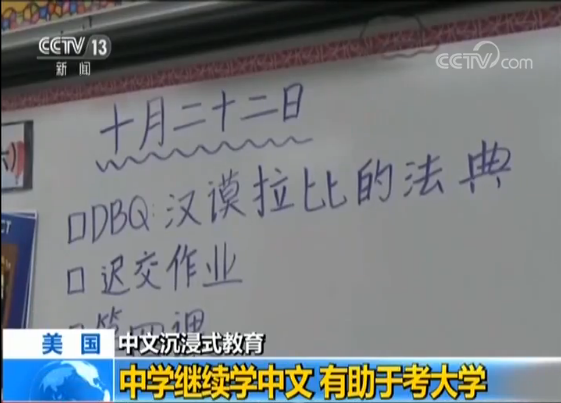 CCTV 13
新闻
CCTV.com
十月二十二日
DBQ:汉谟拉比的法典
迟交作业
第四课
美国
中文沉浸式教育
中学继续学中文 有助于考大学